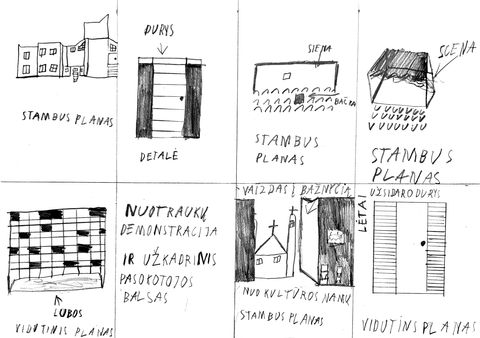 STAMBUS PLANAS
DURYS
DETALĖ
SIENA
STAMBUS
PLANAS
SCENA
STAMBUS
PLANAS
LUBOS
VIDUTINIS PLANAS
NUOTRAUKŲ
DEMONSTRACIJA
IR UŽKADRINIS
PASOKOTOJOS
BALSAS
VAIZDAS Į BAŽNYČIĄ
NUO KULTŪROS NAMŲ
STAMBUS PLANAS
LĖTAI
UŽSIDARO DURYS
VIDUTINS PLANAS